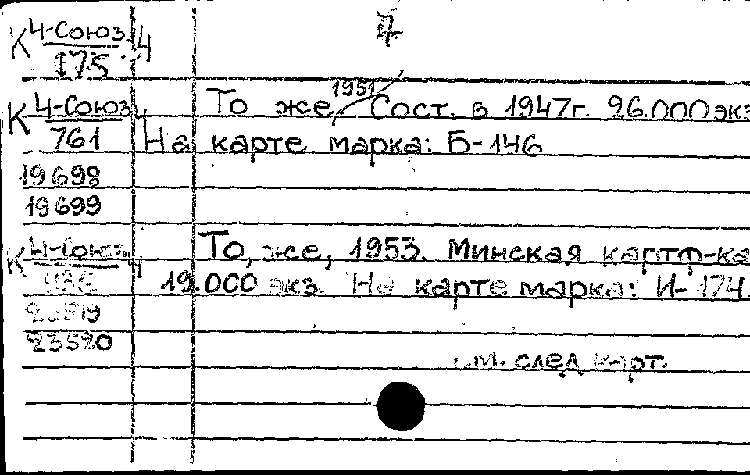 7
К 4-Союз 4
175
1951
К 4-Союз 4 То же Сост. в 1947г. 26.000 экз
761 На карте марка: Б-146
19698
19699
К 4-Союз 4 То, же, 1953. Минская картф-ка
19.000 экз. На карте марка: И-174.
23520
см. след карт.